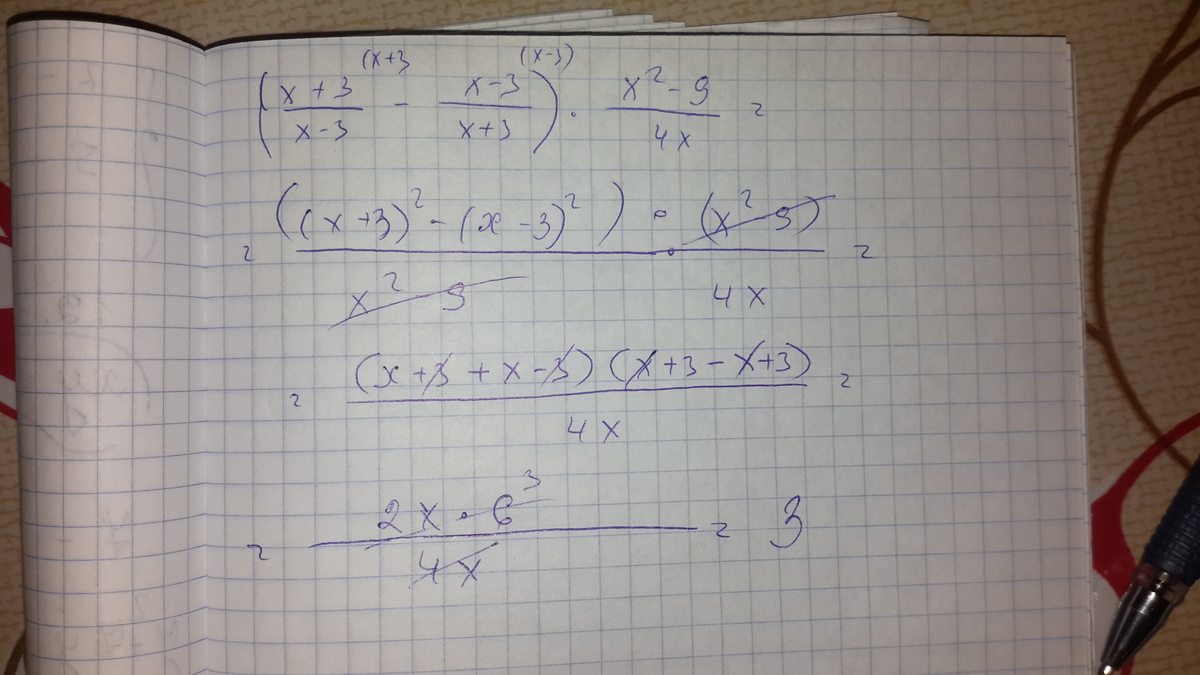 (x+3 (x-3)
( x+3/x-3 - x-3/x+3 ) · x²-9/4x =
= ((x+3)² - (x-3)²) · (x²-9)/x²-9 · 4x =
= (x+3+x-3)(x+3-x+3)/4x =
3
= 2x·6/4x = 3